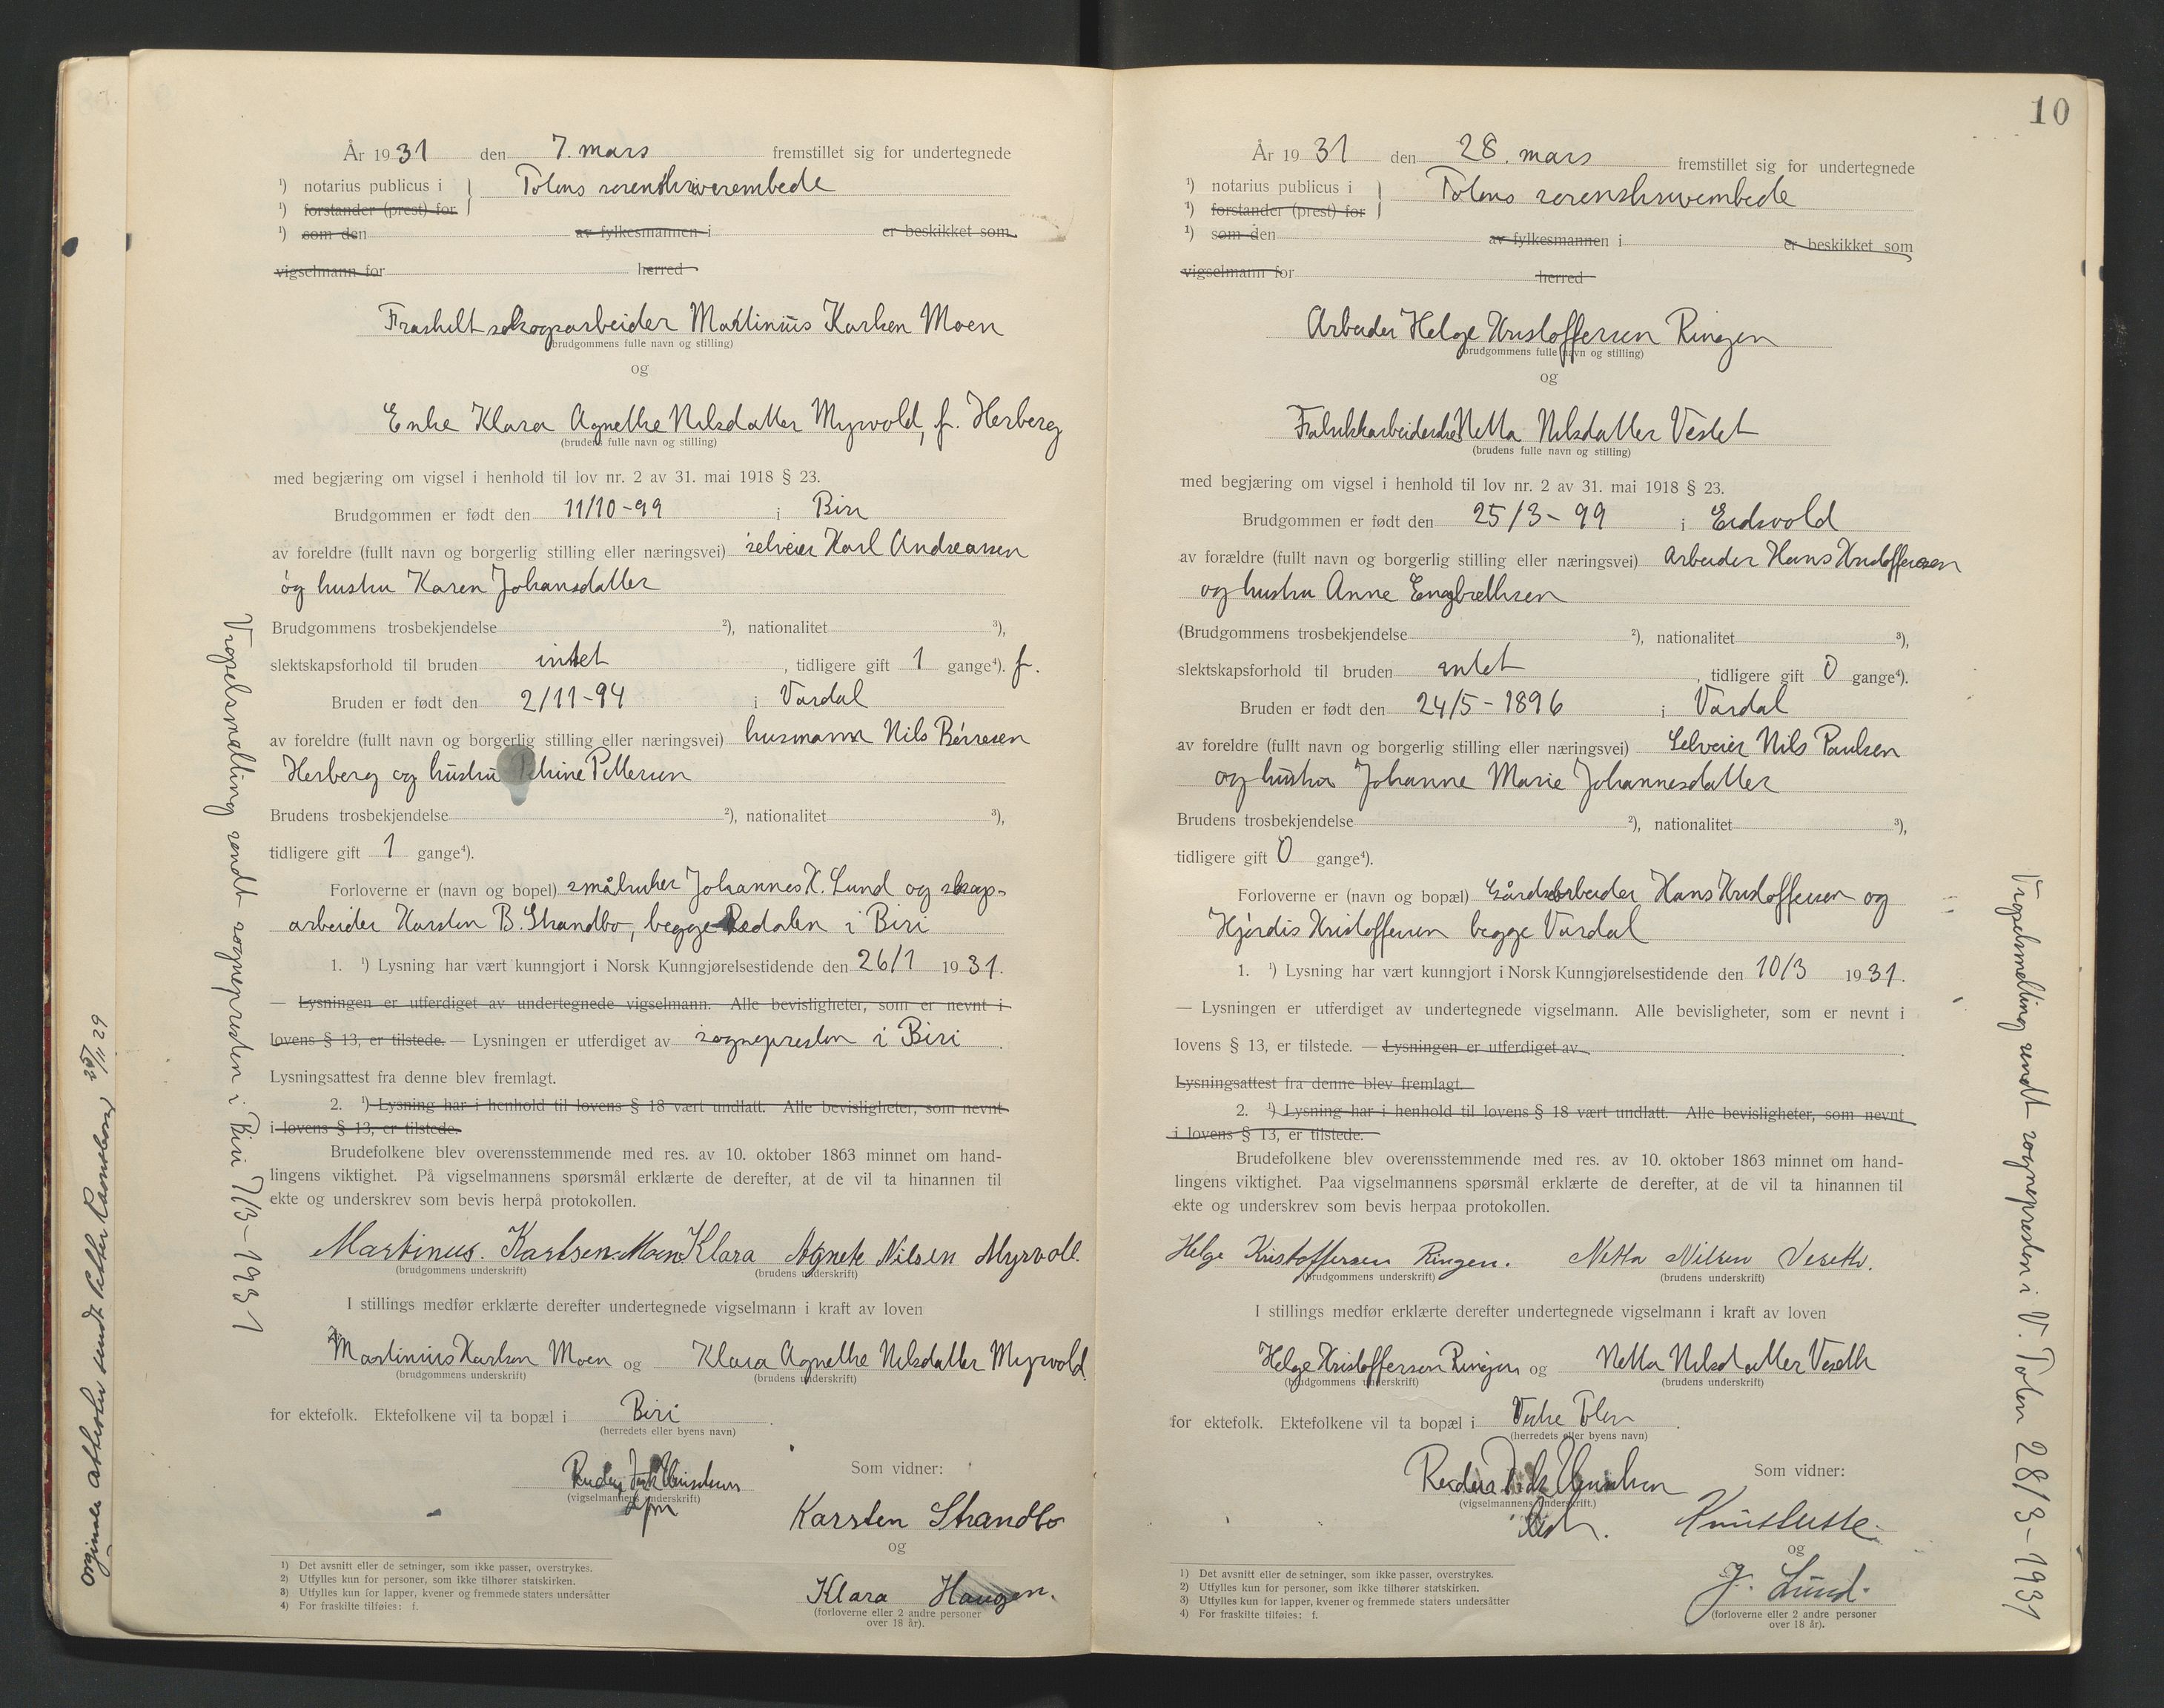 År 1931 den 7. mars fremstillet sig for undertegnede
¹) notarius publicus i } Totens sorenskriverembede
¹) forstander (prest) for
¹) som den av fylkesmannen i er beskikket som
vigselmann for herred
Fraskilt skogsarbeider Martinius Karlsen Moen
(brudgommens fulle navn og stilling)
og
Enke Klara Agnethe Nilsdatter Myrvold, f. Herberg
(brudens fulle navn og stilling)
med begjæring om vigsel i henhold til lov nr. 2 av 31. mai 1918 § 23.
Brudgommen er født den 11/10-99 i Biri
av foreldre (fullt navn og borgerlig stilling eller næringsvei) selveier Karl Andreassen
og hustru Karen Johansdatter
Brudgommens trosbekjendelse ²), nationalitet ³),
slektskapsforhold til bruden intet, tidligere gift 1 gange⁴). f.
Bruden er født den 2/11-94 i Vardal
av foreldre (fullt navn og borgerlig stilling eller næringsvei) husmann Nils Børresen
Herberg og hustru Petrine Pettersen
Brudens trosbekjendelse ²), nationalitet ³),
tidligere gift 1 gange⁴).
Forloverne er (navn og bopel) småbruker Johannes K. Lund og skog-
arbeider Karsten B. Strandbo, begge Redalen i Biri
1. ¹) Lysning har vært kunngjort i Norsk Kunngjørelsestidende den 26/1 1931.
— Lysningen er utferdiget av undertegnede vigselmann. Alle bevisligheter, som er nevnt i
lovens § 13, er tilstede. — Lysningen er utferdiget av sognepresten i Biri.
Lysningsattest fra denne blev fremlagt.
2. ¹) Lysning har i henhold til lovens § 18 vært undlatt. Alle bevisligheter, som nevnt
i lovens § 13, er tilstede.
Brudefolkene blev overensstemmende med res. av 10. oktober 1863 minnet om hand-
lingens viktighet. På vigselmannens spørsmål erklærte de derefter, at de vil ta hinannen til
ekte og underskrev som bevis herpå protokollen.
Martinus. Karlsen. Moen. Klara Agnete Nilsen Myrvoll.
(brudgommens underskrift) (brudens underskrift)
I stillings medfør erklærte derefter undertegnede vigselmann i kraft av loven
Martinius Karlsen Moen og Klara Agnethe Nilsdatter Myrvold
(brudgommens underskrift) (brudens underskrift)
for ektefolk. Ektefolkene vil ta bopæl i Biri.
(herredets eller byens navn)
Som vidner:
(vigselmannens underskrift)
Karsten Strandbo
og
Klara Haugen.
(forloverne eller 2 andre personer
over 18 år).
1) Det avsnitt eller de setninger, som ikke passer, overstrykes.
2) Utfylles kun for personer, som ikke tilhører statskirken.
3) Utfylles kun for lapper, kvener og fremmede staters undersåtter
4) For fraskilte tilføies: f.
Vigselsmelling sendt sognepresten i Biri 7/3-1931
sendt Petter 25/11 29
10
År 1931 den 28. mars fremstillet sig for undertegnede
¹) notarius publicus i } Totens sorenskriverembede
¹) forstander (prest) for
¹) som den av fylkesmannen i er beskikket som
vigselmann for herred
Arbeider Helge Kristoffersen Ringen
(brudgommens fulle navn og stilling)
og
Fabrikkarbeiderske Netta Nilsdatter Veslet
(brudens fulle navn og stilling)
med begjæring om vigsel i henhold til lov nr. 2 av 31. mai 1918 § 23.
Brudgommen er født den 25/3-99 i Eidsvold
av forældre (fullt navn og borgerlig stilling eller næringsvei) arbeider Hans Kristoffersen
og hustru Anne Engbrethsen
(Brudgommens trosbekjendelse ²), nationalitet ³),
slektskapsforhold til bruden intet, tidligere gift 0 gange⁴).
Bruden er født den 24/5-1896 i Vardal
av foreldre (fullt navn og borgerlig stilling eller næringsvei) Selveier Nils Paulsen
og hustru Johanne Marie Johannesdatter
Brudens trosbekjendelse ²), nationalitet ³),
tidligere gift 0 gange⁴).
Forloverne er (navn og bopæl) Gårdsarbeider Hans Kristoffersen og
Hjørdis Kristoffersen begge Vardal
1. ¹) Lysning har vært kunngjort i Norsk Kunngjørelsestidende den 10/3 1931.
— Lysningen er utferdiget av undertegnede vigselmann. Alle bevisligheter, som er nevnt i
lovens § 13, er tilstede. — Lysningen er utferdiget av .
Lysningsattest fra denne blev fremlagt.
2. ¹) Lysning har i henhold til lovens § 18 vært undlatt. Alle bevisligheter, som nevnt
i lovens § 13, er tilstede.
Brudefolkene blev overensstemmende med res. av 10. oktober 1863 minnet om hand-
lingens viktighet. Paa vigselmannens spørsmål erklærte de derefter, at de vil ta hinannen til
ekte og underskrev som bevis herpaa protokollen.
Helge Kristoffersen Ringen. Netta Nilsen Veseth.
(brudgommens underskrift) (brudens underskrift)
I stillings medfør erklærte derefter undertegnede vigselmann i kraft av loven
Helge Kristoffersen Ringen og Netta Nilsdatter Veseth
(brudgommens underskrift) (brudens underskrift)
for ektefolk. Ektefolkene vil ta bopæl i Vestre Toten.
(herredets eller byens navn)
Som vidner:
(vigselmannens underskrift.)
og
J. Lund.
(forloverne eller 2 andre personer
over 18 år).
1) Det avsnitt eller de setninger, som ikke passer, overstrykes.
2) Utfylles kun for personer, som ikke tilhører statskirken.
3) Utfylles kun for lapper, kvener og fremmede staters undersåtter
4) For fraskilte tilføies: f.
Vigselsmelling sendt sognepresten i V. Toten 28/3-1931